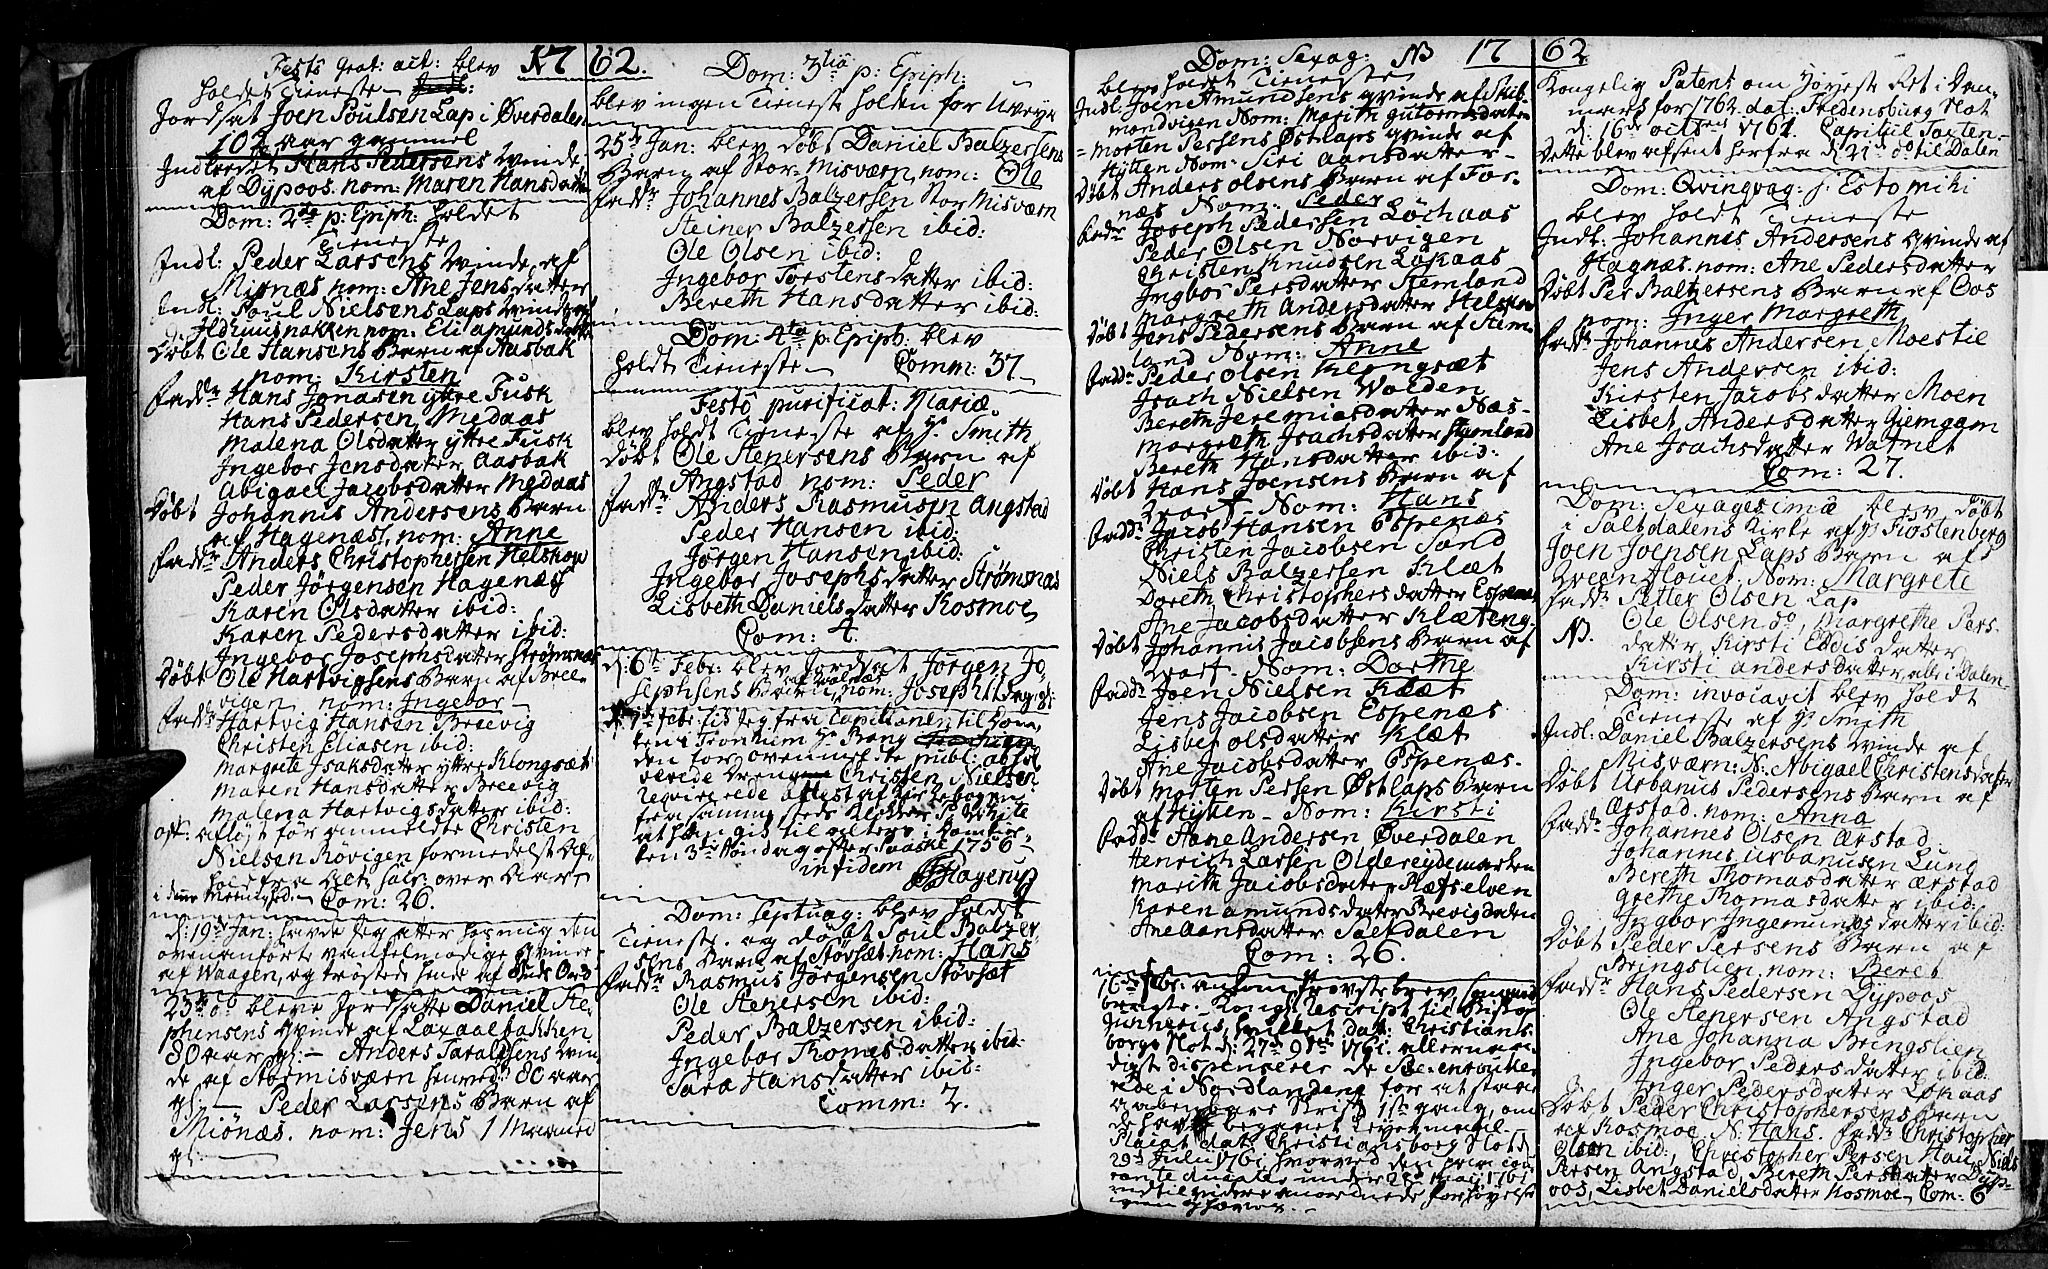 1762.
Festo grat: act: blev
holdet Tieneste
Jordsat Joen Poulsen Lap i Øverdalen
102 aar gammel
Indledet Hans Pedersens qvinde
af Dypoos. nom: Maren Hansdatter
Dom: 2da p: Epiph: holdet
Tieneste
Indl: Peder Larsens qvinde af
Misnæs nom: Ane Jensdatter
Indl: Poul Nielsens Laps qvinde af
Ildhuusnakken nom: Eli Amundsdatter
Døbt Ole Hansens Barn af Aasbak
nom: Kirsten
Fadde Hans Jonasen yttre Fusk
Hans Pedersen Medaas
Malena Olsdatter yttre Fusk
Ingebor Jensdatter Aasbak
Abigael Jacobsdatter Medaas
Døbt Johannis Andersens Barn
af Hagenæss, nom: Anne
Fadde Anders Christophersen Helskop
Peder Jørgensen Hagenæss
Karen Olsdatter ibid:
Karen Pedersdatter ibid:
Ingebor Josephsdatter Strømsnæs
Døbt Ole Hartvigsens Barn af Bree-
vigen nom: Ingebor
Fadde Hartvig Hansen Breevig
Christen Eliasen ibid:
Margrete Isaksdatter yttre Klongsæt
Maren Hansdatter Breevig
Malena Hartvigsdatter ibid:
aflagt før anmeldte Christen
Nielsen Røvigen formedelst
over Aar
Com: 26.
d: 19de Jan: havde jeg atter hos mig den
ovenanførte vankelmodige qvinde
af Waagen, og trøstede hende af Guds Ord
23de do bleve Jordsatte Daniel Ste-
phensens qvinde af Laxaalbakken
80 aar gl: - Anders Taraldsens qvin
de af Stormisværn henved 80 aar
gl: - Peder Larsens Barn af
Misnæs. nom: Jens 1 Maaned
gl:
Dom: 3tia p: Epiph:
blev ingen Tieneste holden for Uveyr
25de Jan: blev døbt Daniel Balzersens
Barn af Stor-Misværn, nom: Ole
Fadde Johannes Balzersen Stor Misværn
Steiner Balzersen ibid:
Ole Olsen ibid:
Ingebor Torstensdatter ibid:
Bereth Hansdatter ibid:
Dom: 4ta p: Epiph: blev
holdt Tieneste Comm: 37
Festo purificat: Mariæ.
blev holdt Tieneste af Hr Smith
Døbt Ole Stenersens Barn af
Angstad nom: Peder
Fadde Anders Rasmusen Angstad
Peder Hansen ibid:
Jørgen Hansen ibid:
Ingebor Josephsdatter Strømsnæs
Lisbeth Danielsdatter Kosmoe
Com: 4.
d: 6te Febr: blev Jordsat Jørgen Jo-
sephsens Barn af Valnæs nom: Joseph
7de Febr: fik jeg fra Capellanen til Dom-
ken i Tronhiem Hr Bang
den for ovenmeldte publ: absol
verede Dreng Christen Nielsen
reqvirerede attest af Kirkebogen
fra sammesteds
at han gik til alters i Domkir-
ken 3de Søndag efter Paaske 1756
in fidem Hagerup
Dom: Septuag: blev holdet
Tieneste. og døbt Poul Balzer-
sens Barn af Støvsæt nom: Hans
Fadde Rasmus Jørgensen Støvsæt
Ole Stenersen ibid:
Peder Balzersen ibid:
Ingebor Thomesdatter ibid:
Sara Hansdatter ibid:
Comm: 2.
1762
Dom: Sexag: NB
blev holdt Tieneste
Indl: Joen Amundsens qvinde af Skib-
mondvigen Nom: Marith Gutormsdatter
Morten Persens Østlaps qvinde af
Hytten Nom: Siri Aansdatter
Døbt Anders Olsens Barn af For-
næs Nom: Peder
Fadde Joseph Pedersen Løchaas
Peder Olsen Norvigen
Christen Knudsen Løkaas
Ingbor Persdatter Stemland
Margreth Andersdatter Helskop
Døbt Jens Pedersens Barn af Stem-
land Nom: Anne
Fadde Peder Olsen Klongsæt
Isach Nielsen Walden
Bereth Jeremiasdatter Næs-
Margreth Isachsdatter Stemland
Bereth Hansdatter ibid:
Døbt Hans Joensens Barn af
Nom: Hans
Fadde Jacob Hansen Espenæs
Christen Jacobsen Sand
Niels Balzersen Klæt
Doreth Christophersdatter Espenæs
Ane Jacobsdatter Klæteng
Døbt Johannis Jacobsens Barn af
Nom: Dorthe
Fadde Joen Nielsen Klæt
Jens Jacobsen Espenæs
Lisbet Olsdatter Klæt
Ane Jacobsdatter Espenæs
Døbt Morten Persen Østlaps Barn
af Hytten - Nom: Kirsti
Fadde Aane Andersen Øverdalen
Henrich Larsen Oldereydemarken
Marith Jacobsdatter Klæfselven
Karen Amundsdatter Brevigdalen
Ane Aansdatter Saltdalen
Com: 26.
16de Febr: ankom Provstebrev
Kongl: Rescript til Biskop
Gunnerus, dat: Christians-
borgs Slot d: 27de 9br 1761. allernaa-
digst dispenserer de
rede i Nordlandene for at staae
aabenbare Skrift 1ste gang, om
de have begaaet Leyermaal
Placat dat: Christiansborg Slot d:
29de Julii 1761
indtil videre anordnede forhøyelse
Kongelig Patent om Høyeste Ret i Dan-
mark for 1762 dat: Fredensburg Slot
d: 16de octobr 1761. Capitul Taxten
Dette blev afsent herfra d: 21de do til Dalen
Dom: Qvinqvag: s: Esto mihi
blev holdt Tieneste
Indl: Johannes Andersens qvinde af
Hagnæs. nom: Ane Pedersdatter
Døbt Per Baltzersens Barn af Oos
nom: Inger Margreth
Fadde Johannes Andersen Moestie
Jens Andersen ibid:
Kirsten Jacobsdatter Moen
Lisbet Andersdatter Giemgam
Ane Isachsdatter Watnet
Com: 27.
Dom: Sexagesimæ blev døbt
i Saltdalens Kirke af Hr Flostenberg
Joen Joensen Laps Barn af
Nom: Margrete
Fadde Petter Olsen Lap
NB. Ole Olsen do, Margrethe Pers-
datter, Kirsti Eddisdatter
Kirsti Andersdatter, alle i Dalen
Dom: invocavit blev holdt
Tieneste af Hr Smith
Indl: Daniel Balzersens qvinde af
Misværn: N: Abigael Christensdatter
Døbt Urbanus Pedersens Barn af
Ærstad. nom: Anna
Fadde Johannes Olsen Ærstad
Johannes Urbanusen Lund
Bereth Thomasdatter Ærstad
Grethe Thomasdatter ibid:
Ingbor Ingemundsdatter ibid:
Døbt Peder Persens Barn af
Bringslien nom: Beret
Fadde Hans Pedersen Dypoos
Ole Stenersen Angstad
Ane Johanna Bringslien
Ingebor Pedersdatter ibid:
Inger Pedersdatter Løkaas
Døbt Peder Christophersens Barn
af Kosmoe N: Hans. Fadde Christopher
Olsen ibid:, Christopher Persen Hau, Niels
Persen Angstad, Bereth Persdatter Dyp-
oos, Lisbet Danielsdatter Kosmoe, Com: 6